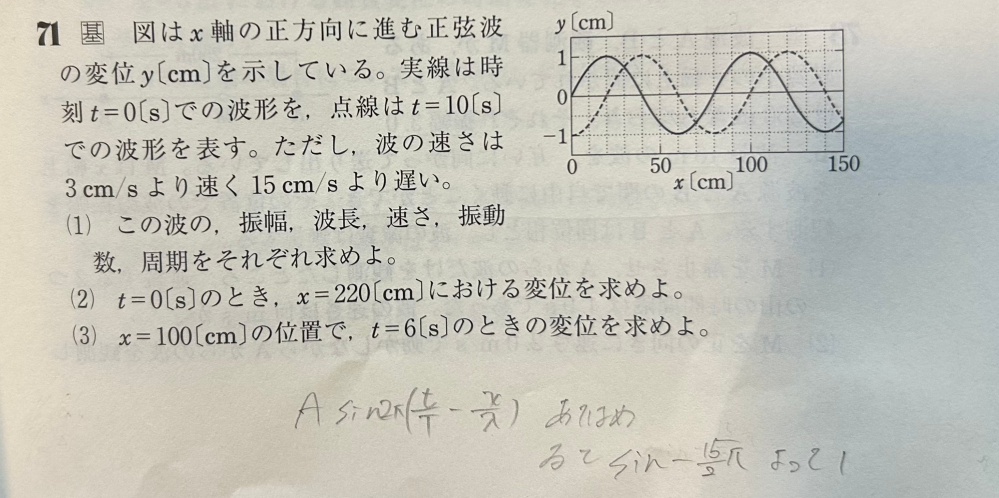 71 基 図はx軸の正方向に進む正弦波
の変位y〔cm〕を示している。実線は時
刻t=0〔s〕での波形を，点線はt=10〔s〕
での波形を表す。ただし，波の速さは
3 cm/s より速く 15 cm/s より遅い。
(1) この波の，振幅，波長，速さ，振動
数，周期をそれぞれ求めよ。
(2) t=0〔s〕のとき，x=220〔cm〕における変位を求めよ。
(3) x=100〔cm〕の位置で，t=6〔s〕のときの変位を求めよ。
y〔cm〕
1
0
−1
0 50 100 150
x〔cm〕
A sin2π(t/T − x/λ) あてはめ
ると sin−15/2π よって1